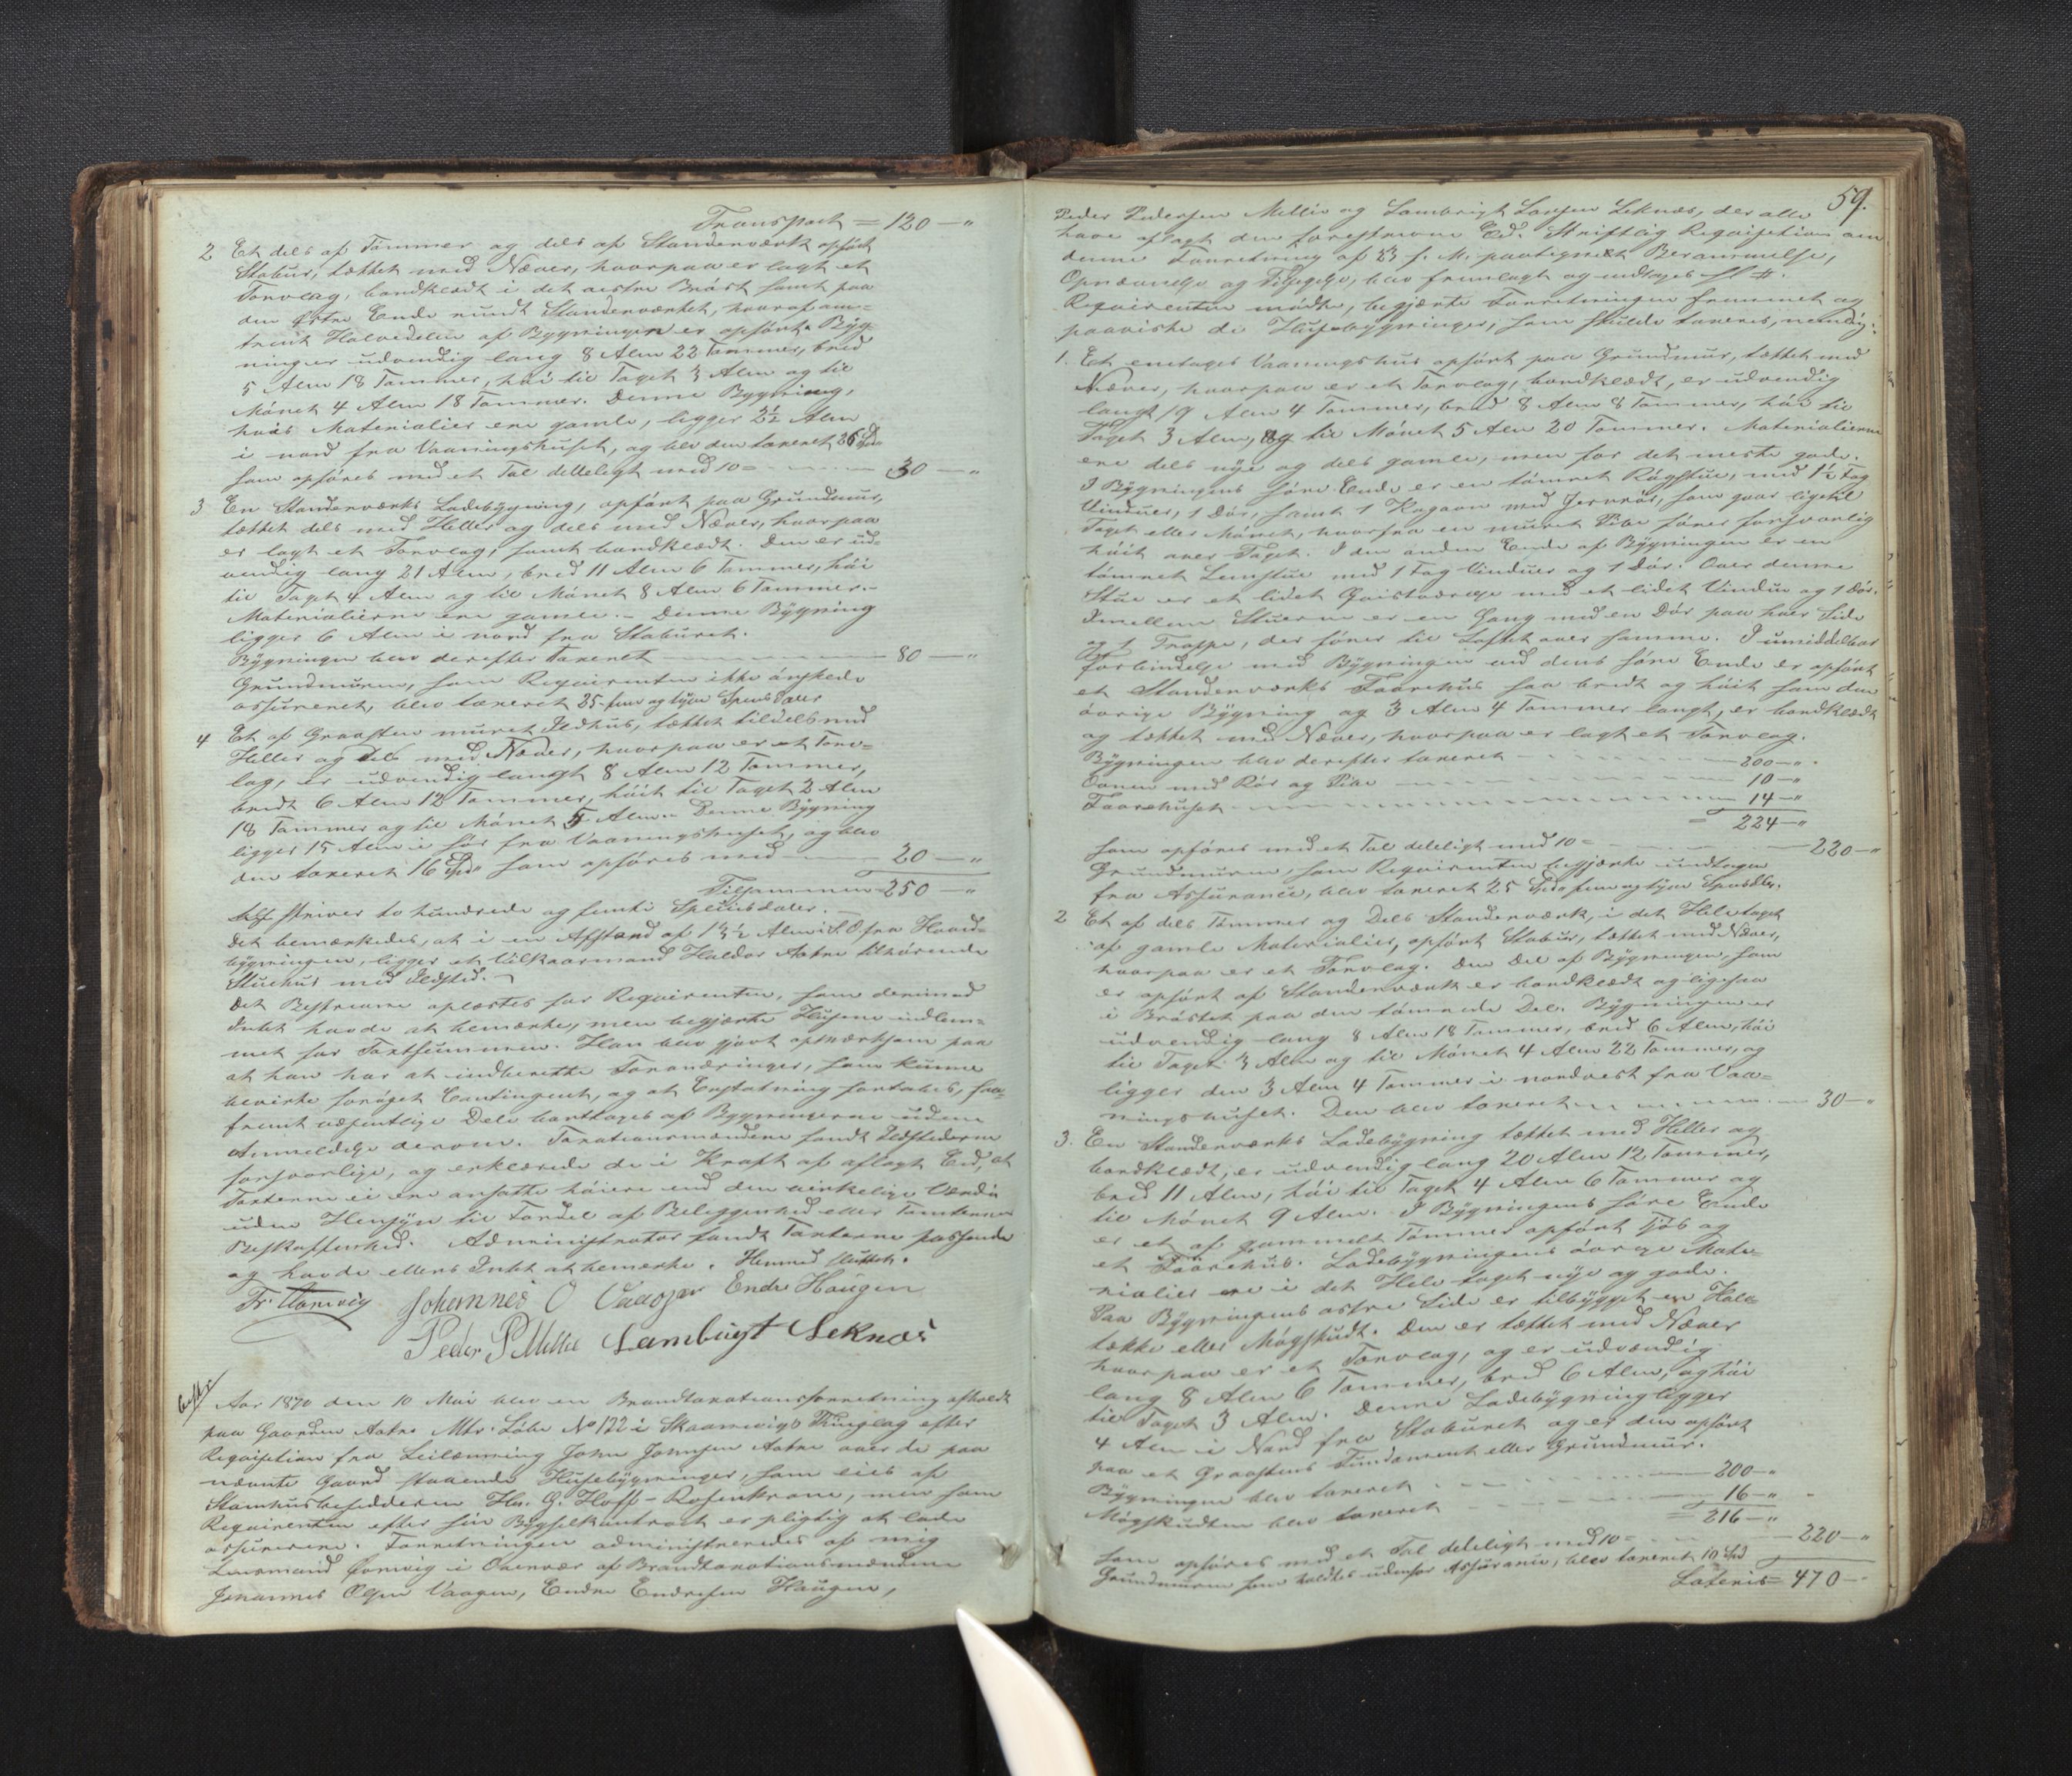 Transport = 120 — "
2 Et dels af Tømmer og dels af Standerværk opført
Stabur, tækket med Næver, hvorpaa er lagt et
Torvlag, bordklædt i det vestre Bråst samt paa
den østre Ende rundt Standerværket, hvoraf om-
trent Halvedelen af Bygningen er opført. Byg-
ningen er udvendig lang 8 Alen 22 Tommer, bred
5 Alen 18 Tommer, høi til Taget 3 Alen og til
Mønet 4 Alen 18 Tommer. Denne Bygning,
hvis Materialier ere gamle, ligger 3½ Alen
i nord fra Vaaningshuset, og blev den taxeret 26 Spd
som opføres med et Tal deleligt med 10 = — 30 — "
3 En Standerværks Ladebygning, opført paa Grundmuur,
tækket dels med Heller og dels med Næver, hvorpaa
er lagt et Torvlag, samt bordklædt. Den er ud-
vendig lang 21 Alen, bred 11 Alen 6 Tommer, høi
til Taget 4 Alen og til Mønet 8 Alen 6 Tommer. -
Materialierne ere gamle. - Denne Bygning
ligger 6 Alen i nord fra Staburet.
Bygningen blev derefter taxeret — 80 — "
Grundmuren, som Requirenten ikke ønskede
assureret, blev taxeret 25 - fem og tyve Speciesdaler
4 Et af Graasteen muret Ildhus, tækket tildels med
Heller og dels med Næver, hvorpaa er et Torv-
lag, er udvendig langt 8 Alen 12 Tommer,
bredt 6 Alen 12 Tommer, høit til Taget 2 Alen
18 Tommer og til Mønet 5 Alen. Denne Bygning
ligger 15 Alen i sør fra Vaaningshuset, og blev
den taxeret 16 Spd som opføres med — 20 — "
Tilsammen = 250 — "
skriver to hundrede og femti Speciesdaler.
Det bemærkedes, at i en Afstand af Alen i S.O. fra Hoved-
bygningen, ligger et Vilkaarsmand Haldor Aakre tilhørende
Stuehus med Ildsted. -
Det Beskrevne oplæstes for Requirenten, som derimod
Intet havde at bemærke, men begjærte Husene indlem-
met for Taxtsummen. Han blev gjort opmærksom paa
at han har at indberette Forandringer, som kunne
bevirke forøget Contingent, og at Erstatning fortabes, saa-
fremt væsentlige Dele borttages af Bygningerne uden
Anmeldelse derom. Taxationsmændene fandt Ildstederne
forsvarlige, og erklærede de i Kraft af aflagt Eed, at
Taxterne ei ere ansatte høiere end den virkelige Værdi
uden Hensyn til Fordel af Beliggenhed eller Tomternes
Beskaffenhed. Administrator fandt Taxterne passende
og havde ellers Intet at bemærke. Hermed sluttet.
Johannes O Vaagen Endre Haugen
Peder P Mellie Lambrigt Leknæs
Aar 1870 den 10 Mai blev en Brandtaxationsforretning afholdt
paa Gaarden Aakre Mtr. Løbe No 122 i Skaanevigs Thinglag efter
Requisition fra Leilænning John Johnsen Aakre over de paa
nævnte Gaard staaende Husebygninger, som eies af
Stamhusbesidderen Hr. G. Hoff-Rosenkrone, men som
Requirenten efter sin Bygselkontract er pligtig at lade
assurerere. Forretningen administreredes af mig
Lensmand i Overvær af Brandtaxationsmændene
Johannes Olsen Vaagen, Endre Endresen Haugen,
59.
Peder Pedersen Mellie og Lambrigt Larsen Leknæs, der alle
have aflagt den foreskrevne Ed. Skriftlig Requisition om
denne Forretning af 23 f. M. paategnet Berammelse,
Opnævnelse og Tilsigelse, blev fremlagt og indtages
Requirenten mødte, begjærte Forretningen fremmet og
paaviste de Husebygninger, som skulde taxeres, nemlig:
1. Et enetages Vaaningshus opført paa Grundmur, tækket med
Næver, hvorpaa er et Torvlag, bordklædt, er udvendig
langt 19 Alen 4 Tommer, bred 8 Alen 8 Tommer, høi til
Taget 3 Alen, og til Mønet 5 Alen 20 Tommer. Materialierne
ere dels nye og dels gamle, men for det meste gode.
I Bygningens søre Ende er en tømret Røgstue, med 1½ Fag
Vinduer, 1 Dør, samt 1 Kogeovn med Jernrør, som gaar ligetil
Taget eller Mønet, hvorfra en muret Pibe fører forsvarlig
høit over Taget. I den anden Ende af Bygningen er en
tømret Lemstue med 1 Fag Vinduer og 1 Dør. Over denne
Stue er et lidet Qvistværelse med et lidet Vindue og 1 Dør.
Imellem Stuerne er en Gang med en Dør paa hver Side
og 1 Trappe, der fører til Loftet over samme. I umiddelbar
Forbindelse med Bygningen ved dens søre Ende er opført
et Standerværks Faarehus saa bredt og høit som den
øvrige Bygning og 3 Alen 4 Tommer langt, er bordklædt
og tækket med Næver, hvorpaa er lagt et Torvlag.
Bygningen blev derefter taxeret — 200 — "
Ovnen med Rør og Pibe — 10 — "
Faarehuset — 14 — "
= 224 — "
som opføres med et Tal deleligt med 10 = — 220 — "
Grundmuren, som Requirenten begjærte undtagen
fra Assurance, blev taxeret 25 Spd fem og tyve Speciesdlr.
2 Et af dels Tømmer og dels Standerværk, i det Hele taget
af gamle Materialier, opført Stabur, tækket med Næver,
hvorpaa er et Torvlag. Den Del af Bygningen, som
er opført af Standerværk er bordklædt og ligesaa
i Bråstet paa den tømrede Del. Bygningen er
udvendig lang 8 Alen 18 Tommer, bred 6 Alen, høi
til Taget 3 Alen og til Mønet 4 Alen 22 Tommer, og
ligger den 3 Alen 4 Tommer i nordvest fra Vaa-
ningshuset. Den blev taxeret — 30 — "
3. En Standerværks Ladebygning tækket med Heller og
bordklædt, er udvendig lang 20 Alen 12 Tommer,
bred 11 Alen, høi til Taget 4 Alen 6 Tommer og
til Mønet 9 Alen. I Bygningens søre Ende
er et af gammelt Tømmer opført Fjøs og
et Faarehus. Ladebygningens øvrige Mate-
rialier ere i det Hele taget nye og gode.
Paa Bygningens østre Side er tilbygget en
eller Møgskudt. Den er tækket med Næver
hvorpaa er et Torvlag, og er udvendig
lang 8 Alen 6 Tommer, bred 6 Alen, og høi
til Taget 3 Alen. Denne Ladebygning ligger
4 Alen i Nord fra Staburet og er den opført
paa et Graastens Fundament eller Grundmur.
Bygningen blev taxeret — 200 — "
Møgskudten blev taxeret — 16 — "
= 216 — "
som opføres med et Tal deleligt med 10 = — 220 — "
Grundmuren som holdtes udenfor Assurance, blev taxeret 10 Spd
Lateris = 470 —